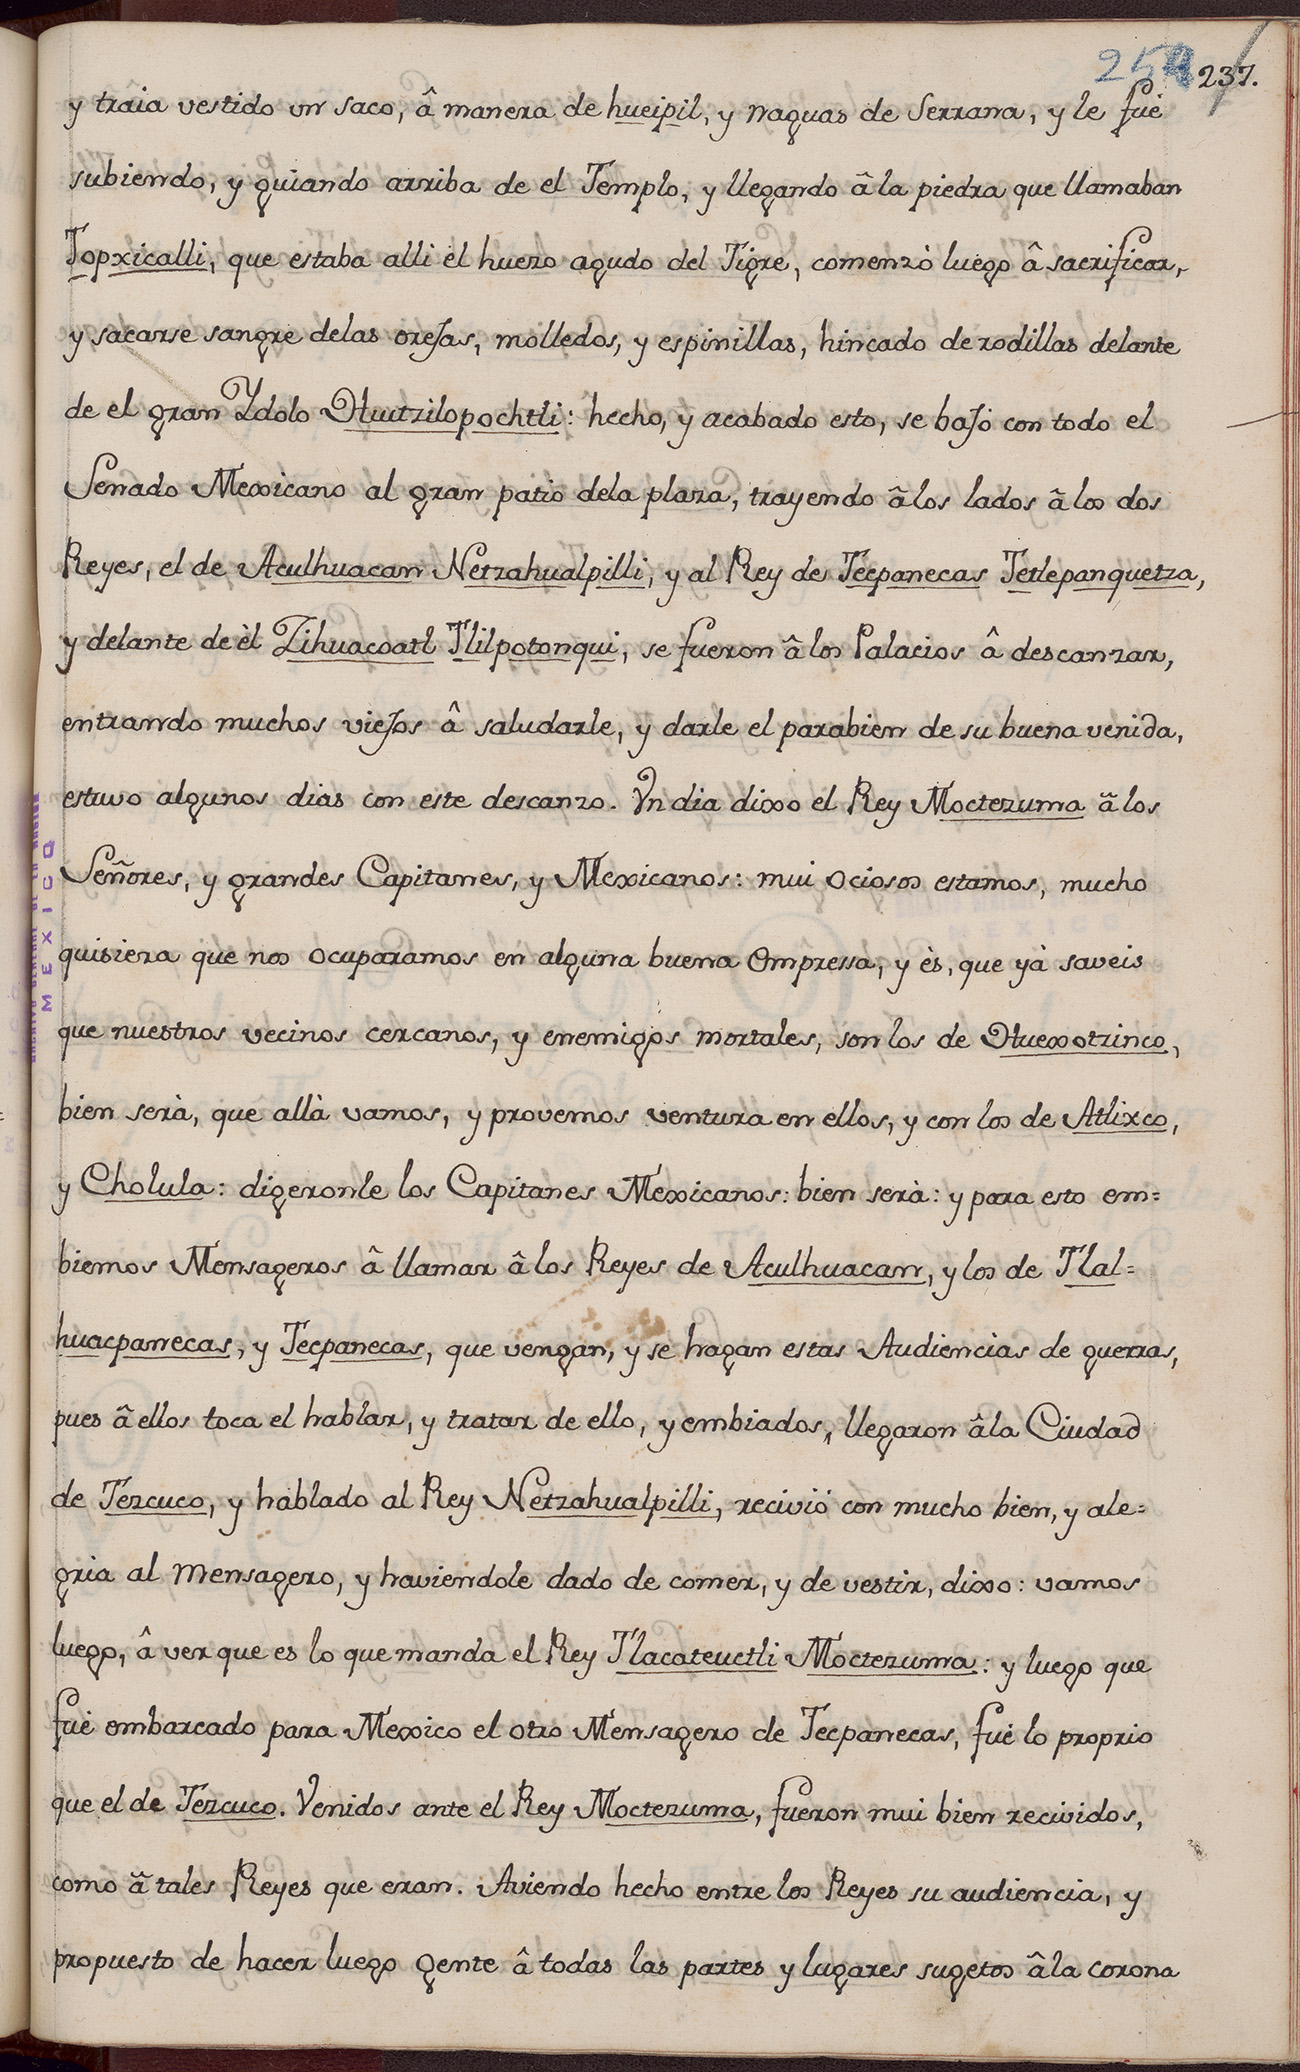 237.
y traia vestido un saco, â manera de hueipil, y naguas de Serrana, y le fuè
subiendo, y guiando arriba de el Templo, y llegando â la piedra que llamaban
Topxicalli, que estaba alli el huezo agudo del Tigre, comenzò luego â sacrificar,
y sacarse sangre delas orejas, molledos, y espinillas, hincado de rodillas delante
de el gran Ydolo Huitzilopochtli: hecho, y acabado esto, se bajó con todo el
Senado Mexicano al gran patio dela plaza, trayendo â los lados â los dos
Reyes, el de Aculhuacan Netzahualpilli, y al Rey de Tecpanecas Tetlepanquetza,
y delante de èl Zihuacoatl Tlilpotonqui, se fueron â los Palacios â descanzar,
entrando muchos viejos â saludarle, y darle el parabien de su buena venida,
estuvo algunos dias con este descanzo. Vn dia dixo el Rey Moctezuma â los
Señores, y grandes Capitanes, y Mexicanos: mui ociosos estamos, mucho
quisiera que nos ocuparamos en alguna buena Empressa, y ès, que yà saveis
que nuestros vecinos cercanos, y enemigos mortales, son los de Huexotzinco,
bien serà, que allà vamos, y provemos ventura en ellos, y con los de Atlixco,
y Cholula: digeronle los Capitanes Mexicanos: bien serà: y para esto em=
biemos Mensageros â llamar â los Reyes de Aculhuacan, y los de Tlal=
huacpanecas, y Tecpanecas, que vengan, y se hagan estas Audiencias de guerras,
pues â ellos toca el hablar, y tratar de ello, y embiados, llegaron â la Ciudad
de Tezcuco, y hablado al Rey Netzahualpilli, recivió con mucho bien, y ale=
gria al Mensagero, y haviendole dado de comer, y de vestir, dixo: vamos
luego, â ver que es lo que manda el Rey Tlacateuctli Moctezuma: y luego que
fuè embarcado para Mexico el otro Mensagero de Tecpanecas, fuè lo proprio
que el de Tezcuco. Venidos ante el Rey Moctezuma, fueron mui bien recividos,
como â tales Reyes que eran. Aviendo hecho entre los Reyes su audiencia, y
propuesto de hacer luego gente â todas las partes y lugares sugetos â la corona
MEXICO